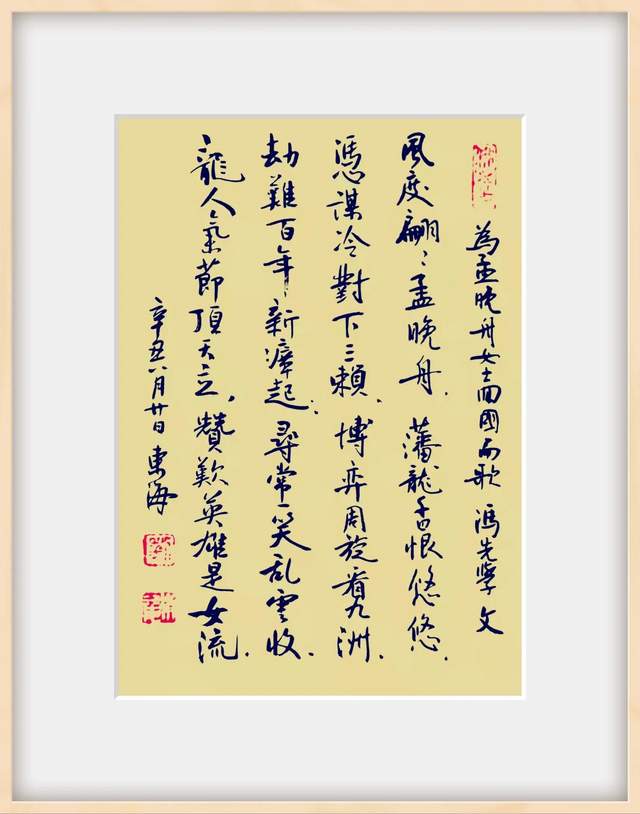 為孟晚舟女士回國而歌 馮先學 文
風度翩〻孟晚舟.藩龍千古恨悠悠.
憑謀冷對下三賴.博弈周旋看九洲.
劫難百年新瘴起.尋常一笑乱雲收.
龍人氣節頂天立,贊歎英雄是女流.
辛丑八月廿日 東海